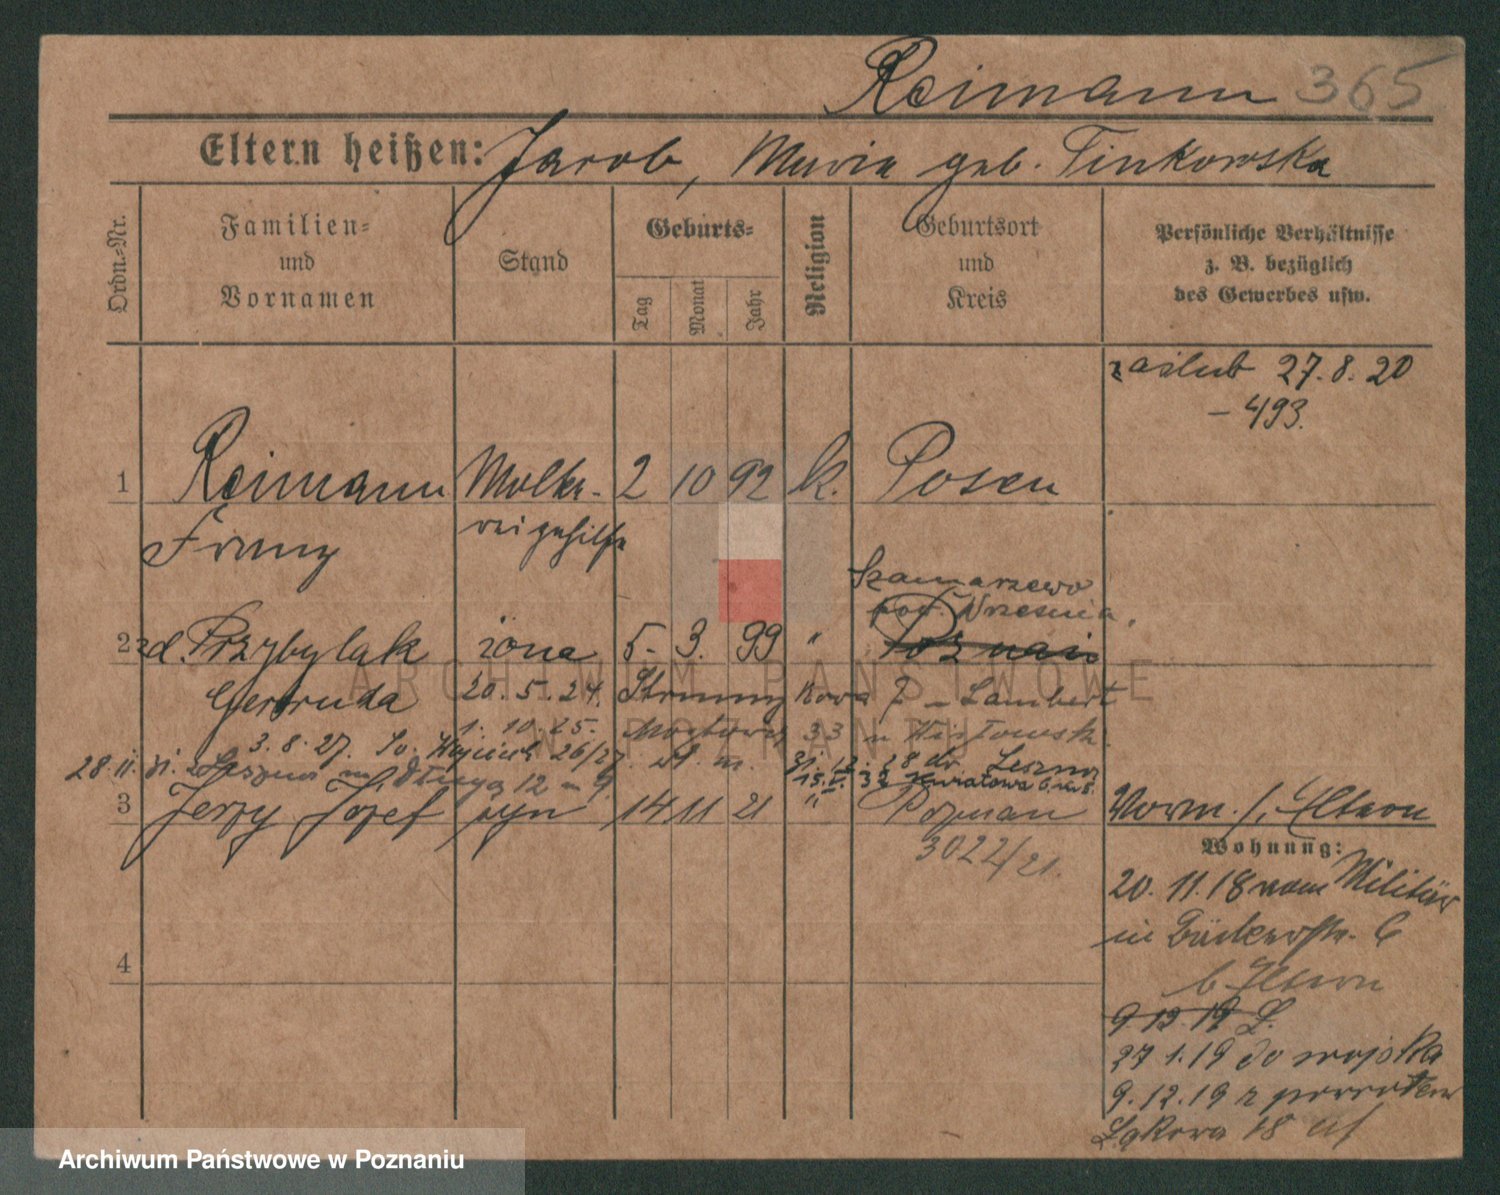 Reimann 365
Eltern heißen: Jacob, Maria geb. Tinkowska
Ordn.-Nr.
Familien-
und
Vornamen
Stand
Geburts-
Tag
Monat
Jahr
Religion
Geburtsort
und
Kreis
Persönliche Verhältnisse
z. B. bezüglich
des Gewerbes usw.
zaślub 27.8.20
– 493.
1 Reimann Molke- 2 10 92 k. Posen
Franz reigehilfe
Szamarzewo
pow. Września
2 zd. Przybylak żona 5. 3. 99 " Poznań
Gertruda 20.5.24. Strumykowa 7 Lambert
1.10.25. Mostowa 33
3.8.27. 26/27.
28.11.31. z Leszna Długa 12 m 9 31.12.28 do Leszna
15. 32 Kwiatowa 6
3 Jerzy Józef syn 14 11 21 " Poznań
3022/21.
Vorm. s. Eltern
Wohnung:
20.11.18 vom Militär
in Bäckerstr. 6
b. Eltern
9.12.19 L.
27 1.19 do wojska
9.12.19 z powrotem
Łąkowa 18
4
ARCHIWUM PAŃSTWOWE
W POZNANIU
Archiwum Państwowe w Poznaniu